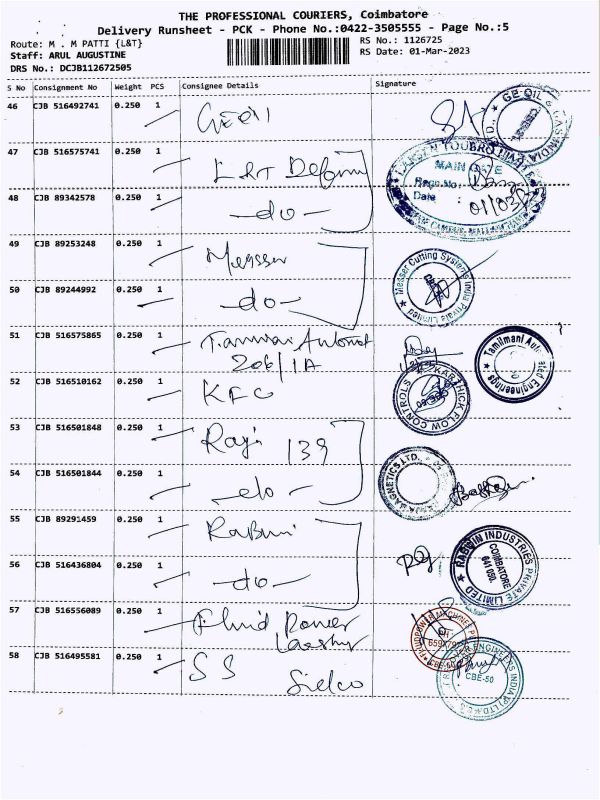 THE PROFESSIONAL COURIERS, Coimbatore
Delivery Runsheet - PCK - Phone No.:0422-3505555 - Page No.:5
Route: M . M PATTI {L&T}
RS No.: 1126725
Staff: ARUL AUGUSTINE
RS Date: 01-Mar-2023
DRS No.: DCJB112672505
S No Consignment No Weight PCS Consignee Details Signature
46 CJB 516492741 0.250 1
GE OIL & GAS INDIA
47 CJB 516575741 0.250 1 L&T
LARSEN & TOUBRO LIMITED
MAIN GATE
Regn.No:
Date : 01/03/
48 CJB 89342578 0.250 1 -do-
49 CJB 89253248 0.250 1 Messer
Messer Cutting Systems India Private Limited
50 CJB 89244992 0.250 1 -do-
51 CJB 516575865 0.250 1
206/1A
Tamilmani Automated Engineerings
52 CJB 516510162 0.250 1 KFC
KARTHICK FLOW CONTROLS
53 CJB 516501848 0.250 1 Raja 139
54 CJB 516501844 0.250 1 -do-
MAGNETICS LTD.,
55 CJB 89291459 0.250 1
RABWIN INDUSTRIES PRIVATE LIMITED
COIMBATORE
641 050.
56 CJB 516436804 0.250 1 -do-
57 CJB 516556089 0.250 1 Fluid Power
58 CJB 516495581 0.250 1 SS
ENGINEERS INDIA (P) LTD
CBE-50